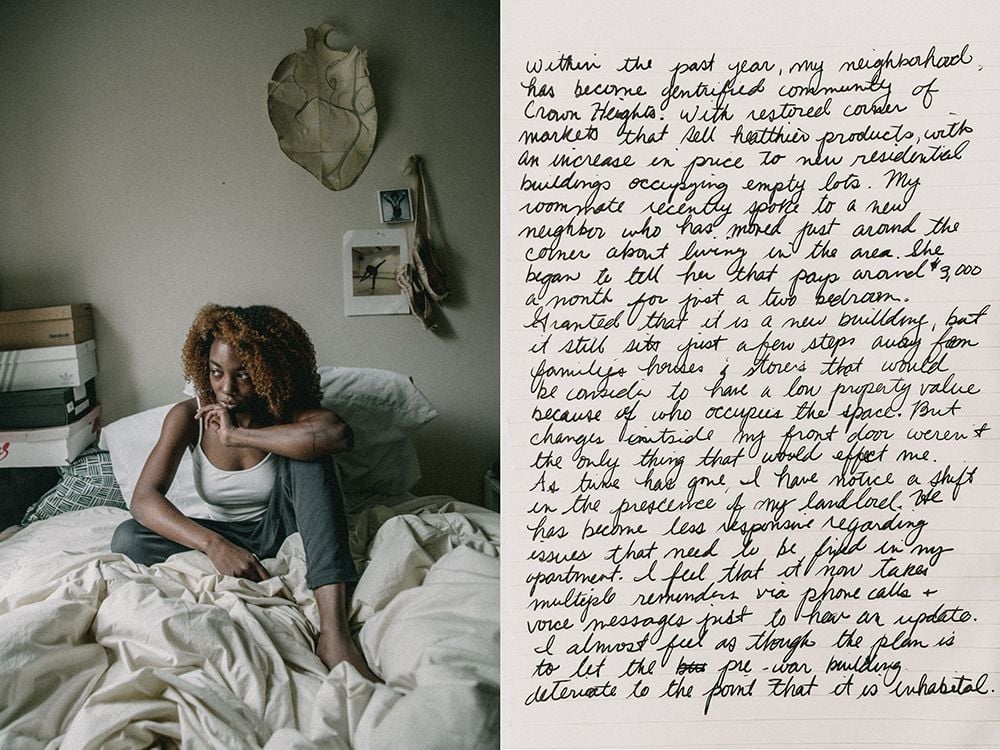 Reebok
adidas
within the past year, my neighborhood,
has become gentrified community of
Crown Heights. With restored corner
markets that sell healthier products, with
an increase in price to new residential
buildings occupying empty lots. My
roommate recently spoke to a new
neighbor who has moved just around the
corner about living in the area. She
began to tell her that pays around $3,000
a month for just a two bedroom.
Granted that it is a new building, but
it still sits just a few steps away from
families houses & stores that would
be consider to have a low property value
because of who occupies the space. But
changes outside my front door weren't
the only thing that would effect me.
As time has gone, I have notice a shift
in the prescence of my landlord. He
has become less responsive regarding
issues that need to be fixed in my
apartment. I feel that it now takes
multiple reminders via phone calls +
voice messages just to hear an update.
I almost feel as though the plan is
to let the pre-war building
deteriate to the point that it is inhabital.